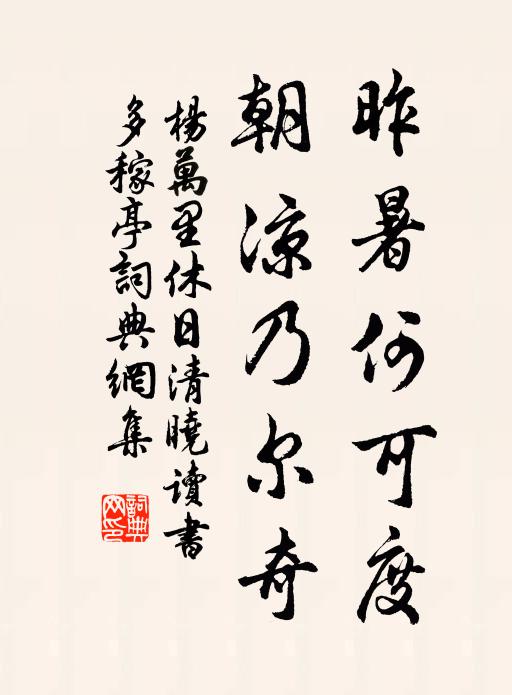 昨暑何可度
朝凉乃尔奇
楊萬里休日清曉讀書
多稼亭詞典網集
詞典
网印